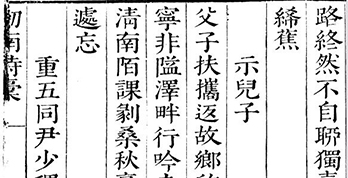 路終然不自聊獨
絺蕉
示兒子
父子扶攜返故鄉
寧非隘澤畔行吟
清南陌課剝桑秋
遽忘
重五同尹少
南